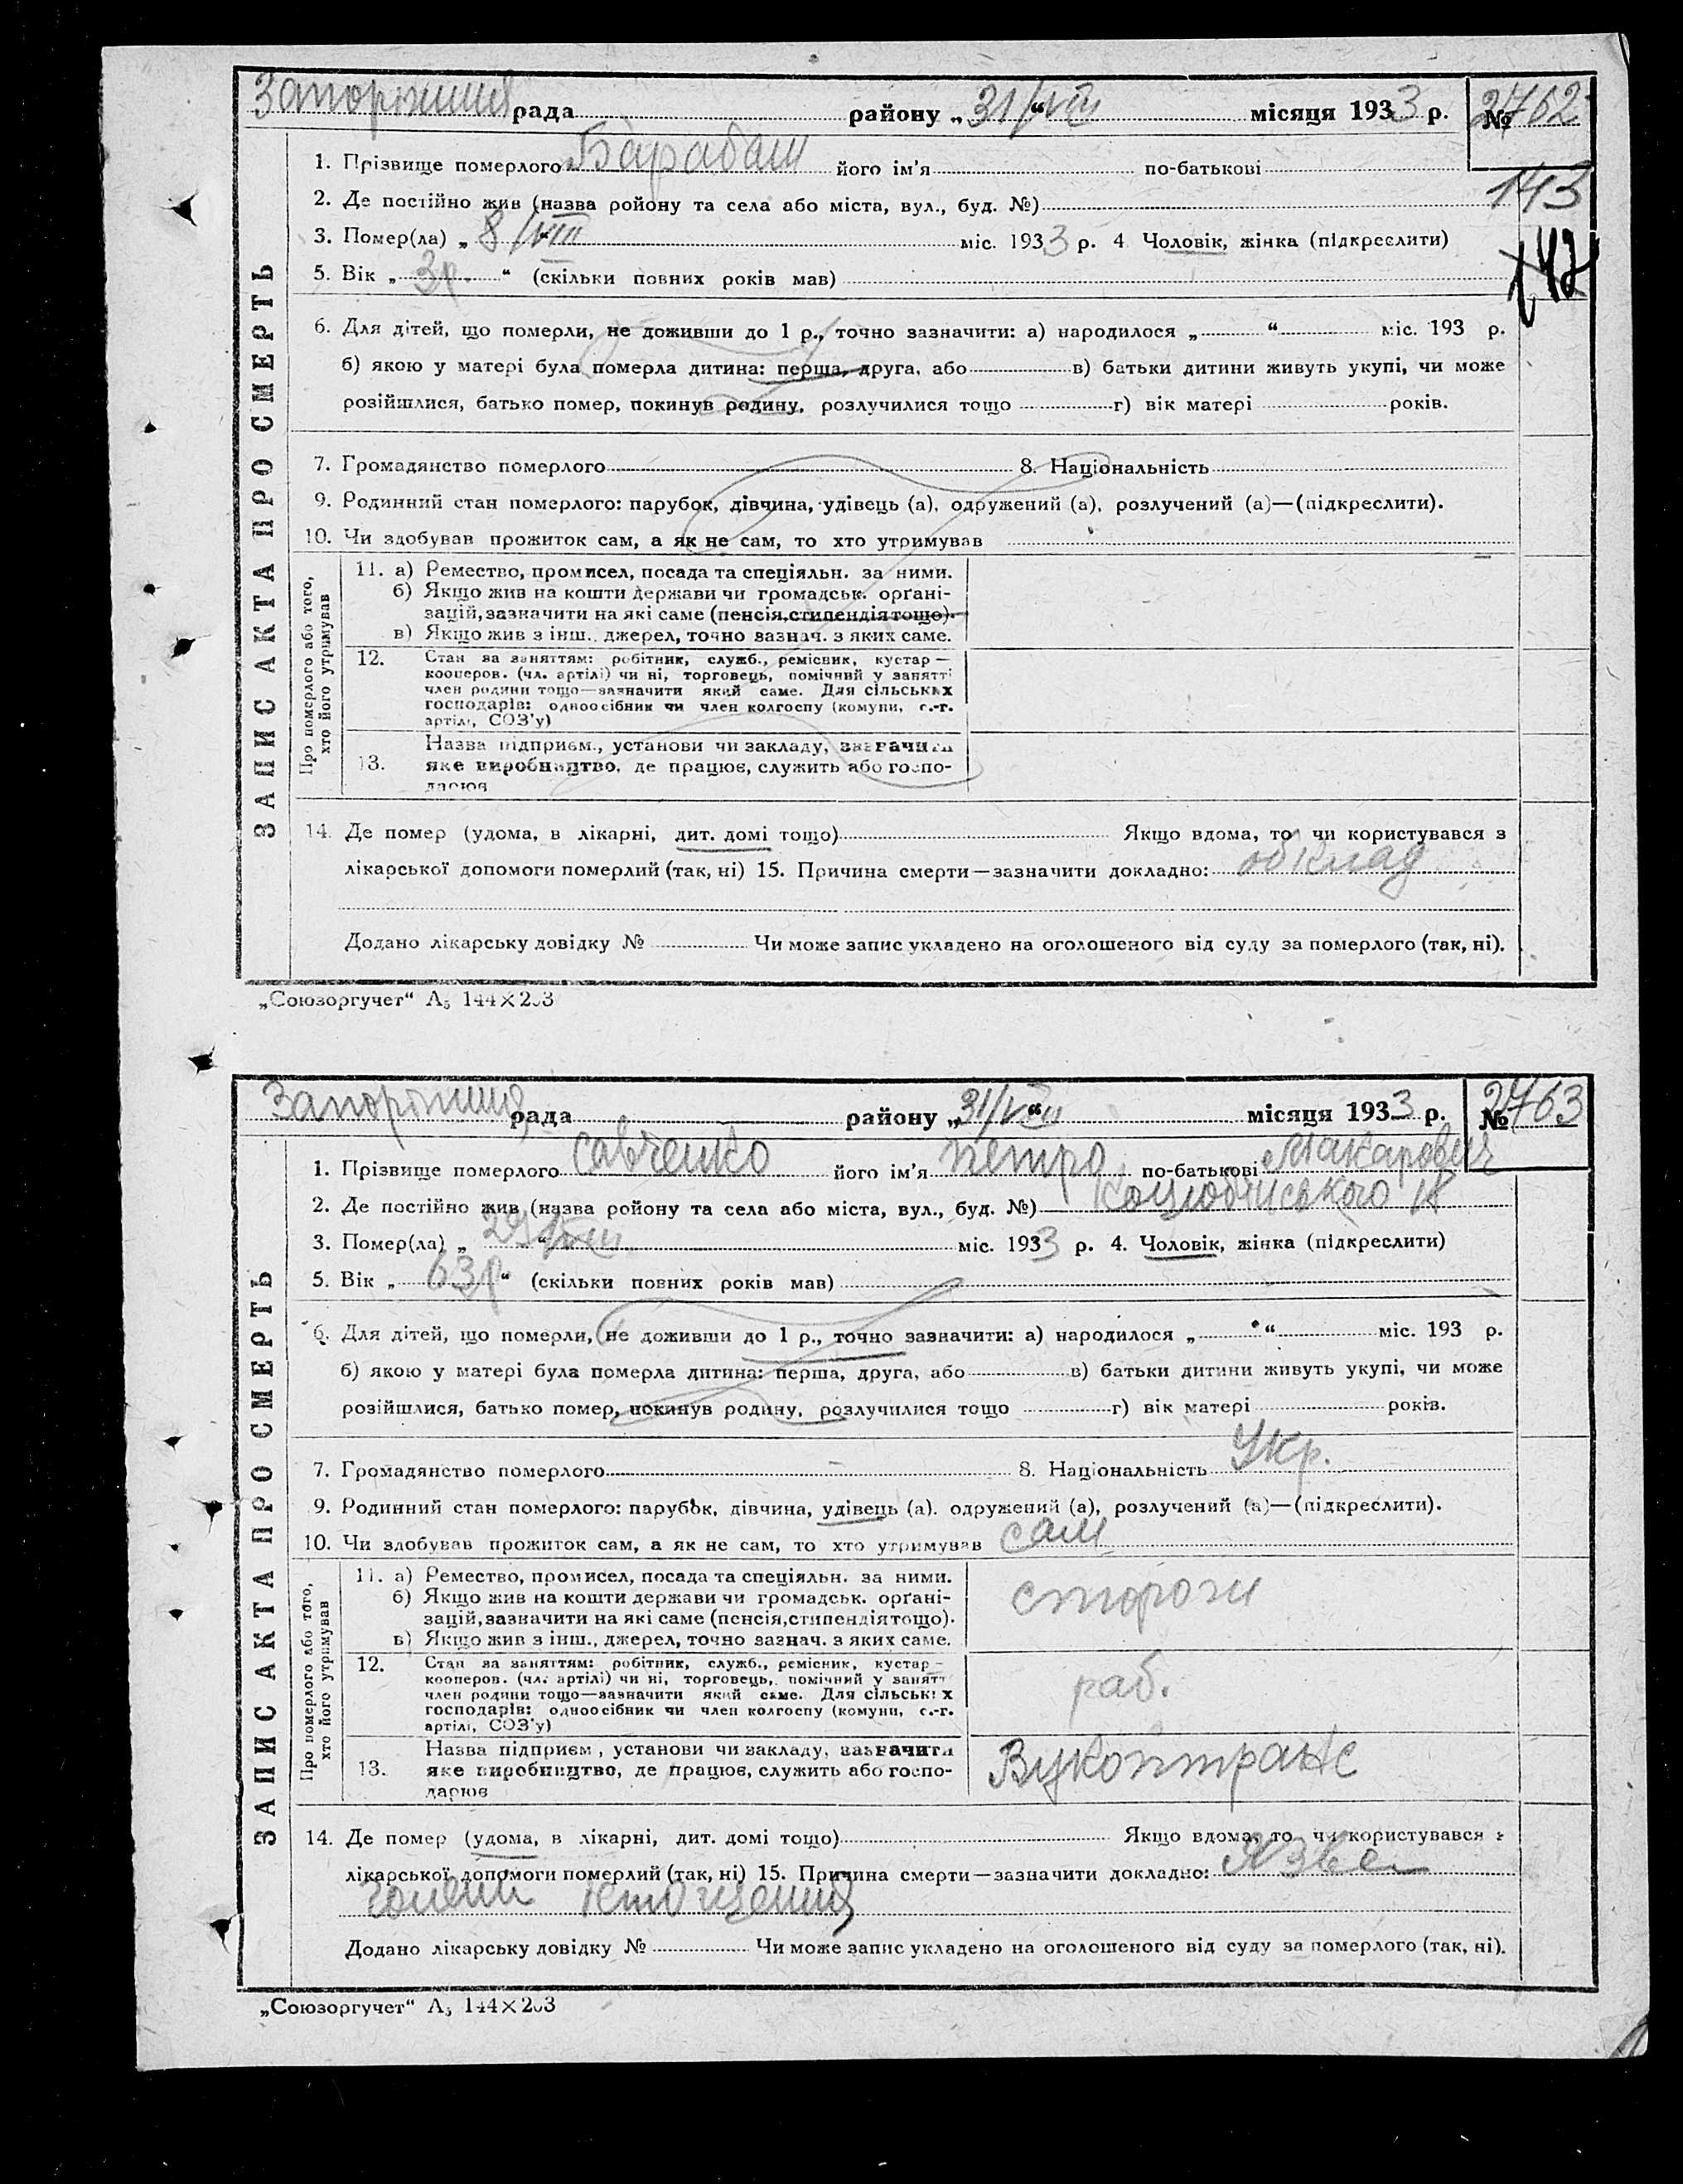 Запоріжжя рада району „31/VIII“ місяця 1933 р. № 2762
1. Прізвище померлого Барабаш його ім'я по-батькові
143
2. Де постійно жив (назва ройону та села або міста, вул., буд. №)
3. Помер(ла) „8/VIII“ міс. 1933 р. 4. Чоловік, жінка (підкреслити)
142
5. Вік „3р.“ (скільки повних років мав)
6. Для дітей, що померли, не доживши до 1 р., точно зазначити: а) народилося „ “ міс. 193 р.
б) якою у матері була померла дитина: перша, друга, або в) батьки дитини живуть укупі, чи може
розійшлися, батько помер, покинув родину, розлучилися тощо г) вік матері років.
7. Громадянство померлого 8. Національність
9. Родинний стан померлого: парубок, дівчина, удівець (а), одружений (а), розлучений (а)—(підкреслити).
10. Чи здобував прожиток сам, а як не сам, то хто утримував
ЗАПИС АКТА ПРО СМЕРТЬ
Про померлого або того, хто його утримував
11. а) Ремество, промисел, посада та спеціяльн. за ними.
б) Якщо жив на кошти держави чи громадськ. орґані-
зацій, зазначити на які саме (пенсія, стипендія тощо).
в) Якщо жив з інш. джерел, точно зазнач. з яких саме.
12. Стан за заняттям: робітник, служб., ремісник, кустар—
кооперов. (чл. артілі) чи ні, торговець, помічний у занятті
член родини тощо—зазначити який саме. Для сільських
господарів: одноосібник чи член колгоспу (комуни, с.-г.
артілі, СОЗ'у)
Назва підприєм., установи чи закладу, зазначити
13. яке виробництво, де працює, служить або госпо-
дарює
14. Де помер (удома, в лікарні, дит. домі тощо) Якщо вдома, то чи користувався з
лікарської допомоги померлий (так, ні) 15. Причина смерти—зазначити докладно: обклад
Додано лікарську довідку № Чи може запис укладено на оголошеного від суду за померлого (так, ні).
„Союзоргучет“ А5 144×203
Запоріжжя рада району „31/VIII“ місяця 1933 р. № 2763
1. Прізвище померлого Савченко його ім'я Петро по-батькові Макарович
2. Де постійно жив (назва ройону та села або міста, вул., буд. №) Коцюбинського 18
3. Помер(ла) „29/VIII“ міс. 1933 р. 4. Чоловік, жінка (підкреслити)
5. Вік „63р“ (скільки повних років мав)
6. Для дітей, що померли, не доживши до 1 р., точно зазначити: а) народилося „ “ міс. 193 р.
б) якою у матері була померла дитина: перша, друга, або в) батьки дитини живуть укупі, чи може
розійшлися, батько помер, покинув родину, розлучилися тощо г) вік матері років.
7. Громадянство померлого 8. Національність Укр.
9. Родинний стан померлого: парубок, дівчина, удівець (а). одружений (а), розлучений (а)—(підкреслити).
10. Чи здобував прожиток сам, а як не сам, то хто утримував сам
ЗАПИС АКТА ПРО СМЕРТЬ
Про померлого або того, хто його утримував
11. а) Ремество, промисел, посада та спеціяльн. за ними.
б) Якщо жив на кошти держави чи громадськ. орґані-
зацій, зазначити на які саме (пенсія, стипендія тощо).
в) Якщо жив з інш., джерел, точно зазнач. з яких саме.
сторож
12. Стан за заняттям: робітник, служб., ремісник, кустар—
кооперов. (чл. артілі) чи ні, торговець, помічний у занятті
член родини тощо—зазначити який саме. Для сільських
господарів: одноосібник чи член колгоспу (комуни, с.-г.
артілі, СОЗ'у)
раб.
Назва підприєм., установи чи закладу, зазначити
13. яке виробництво, де працює, служить або госпо-
дарює
Вукоптранс
14. Де помер (удома, в лікарні, дит. домі тощо) Якщо вдома, то чи користувався з
лікарської допомоги померлий (так, ні) 15. Причина смерти—зазначити докладно: Язва
голени истощения
Додано лікарську довідку № Чи може запис укладено на оголошеного від суду за померлого (так, ні).
„Союзоргучет“ А5 144×203